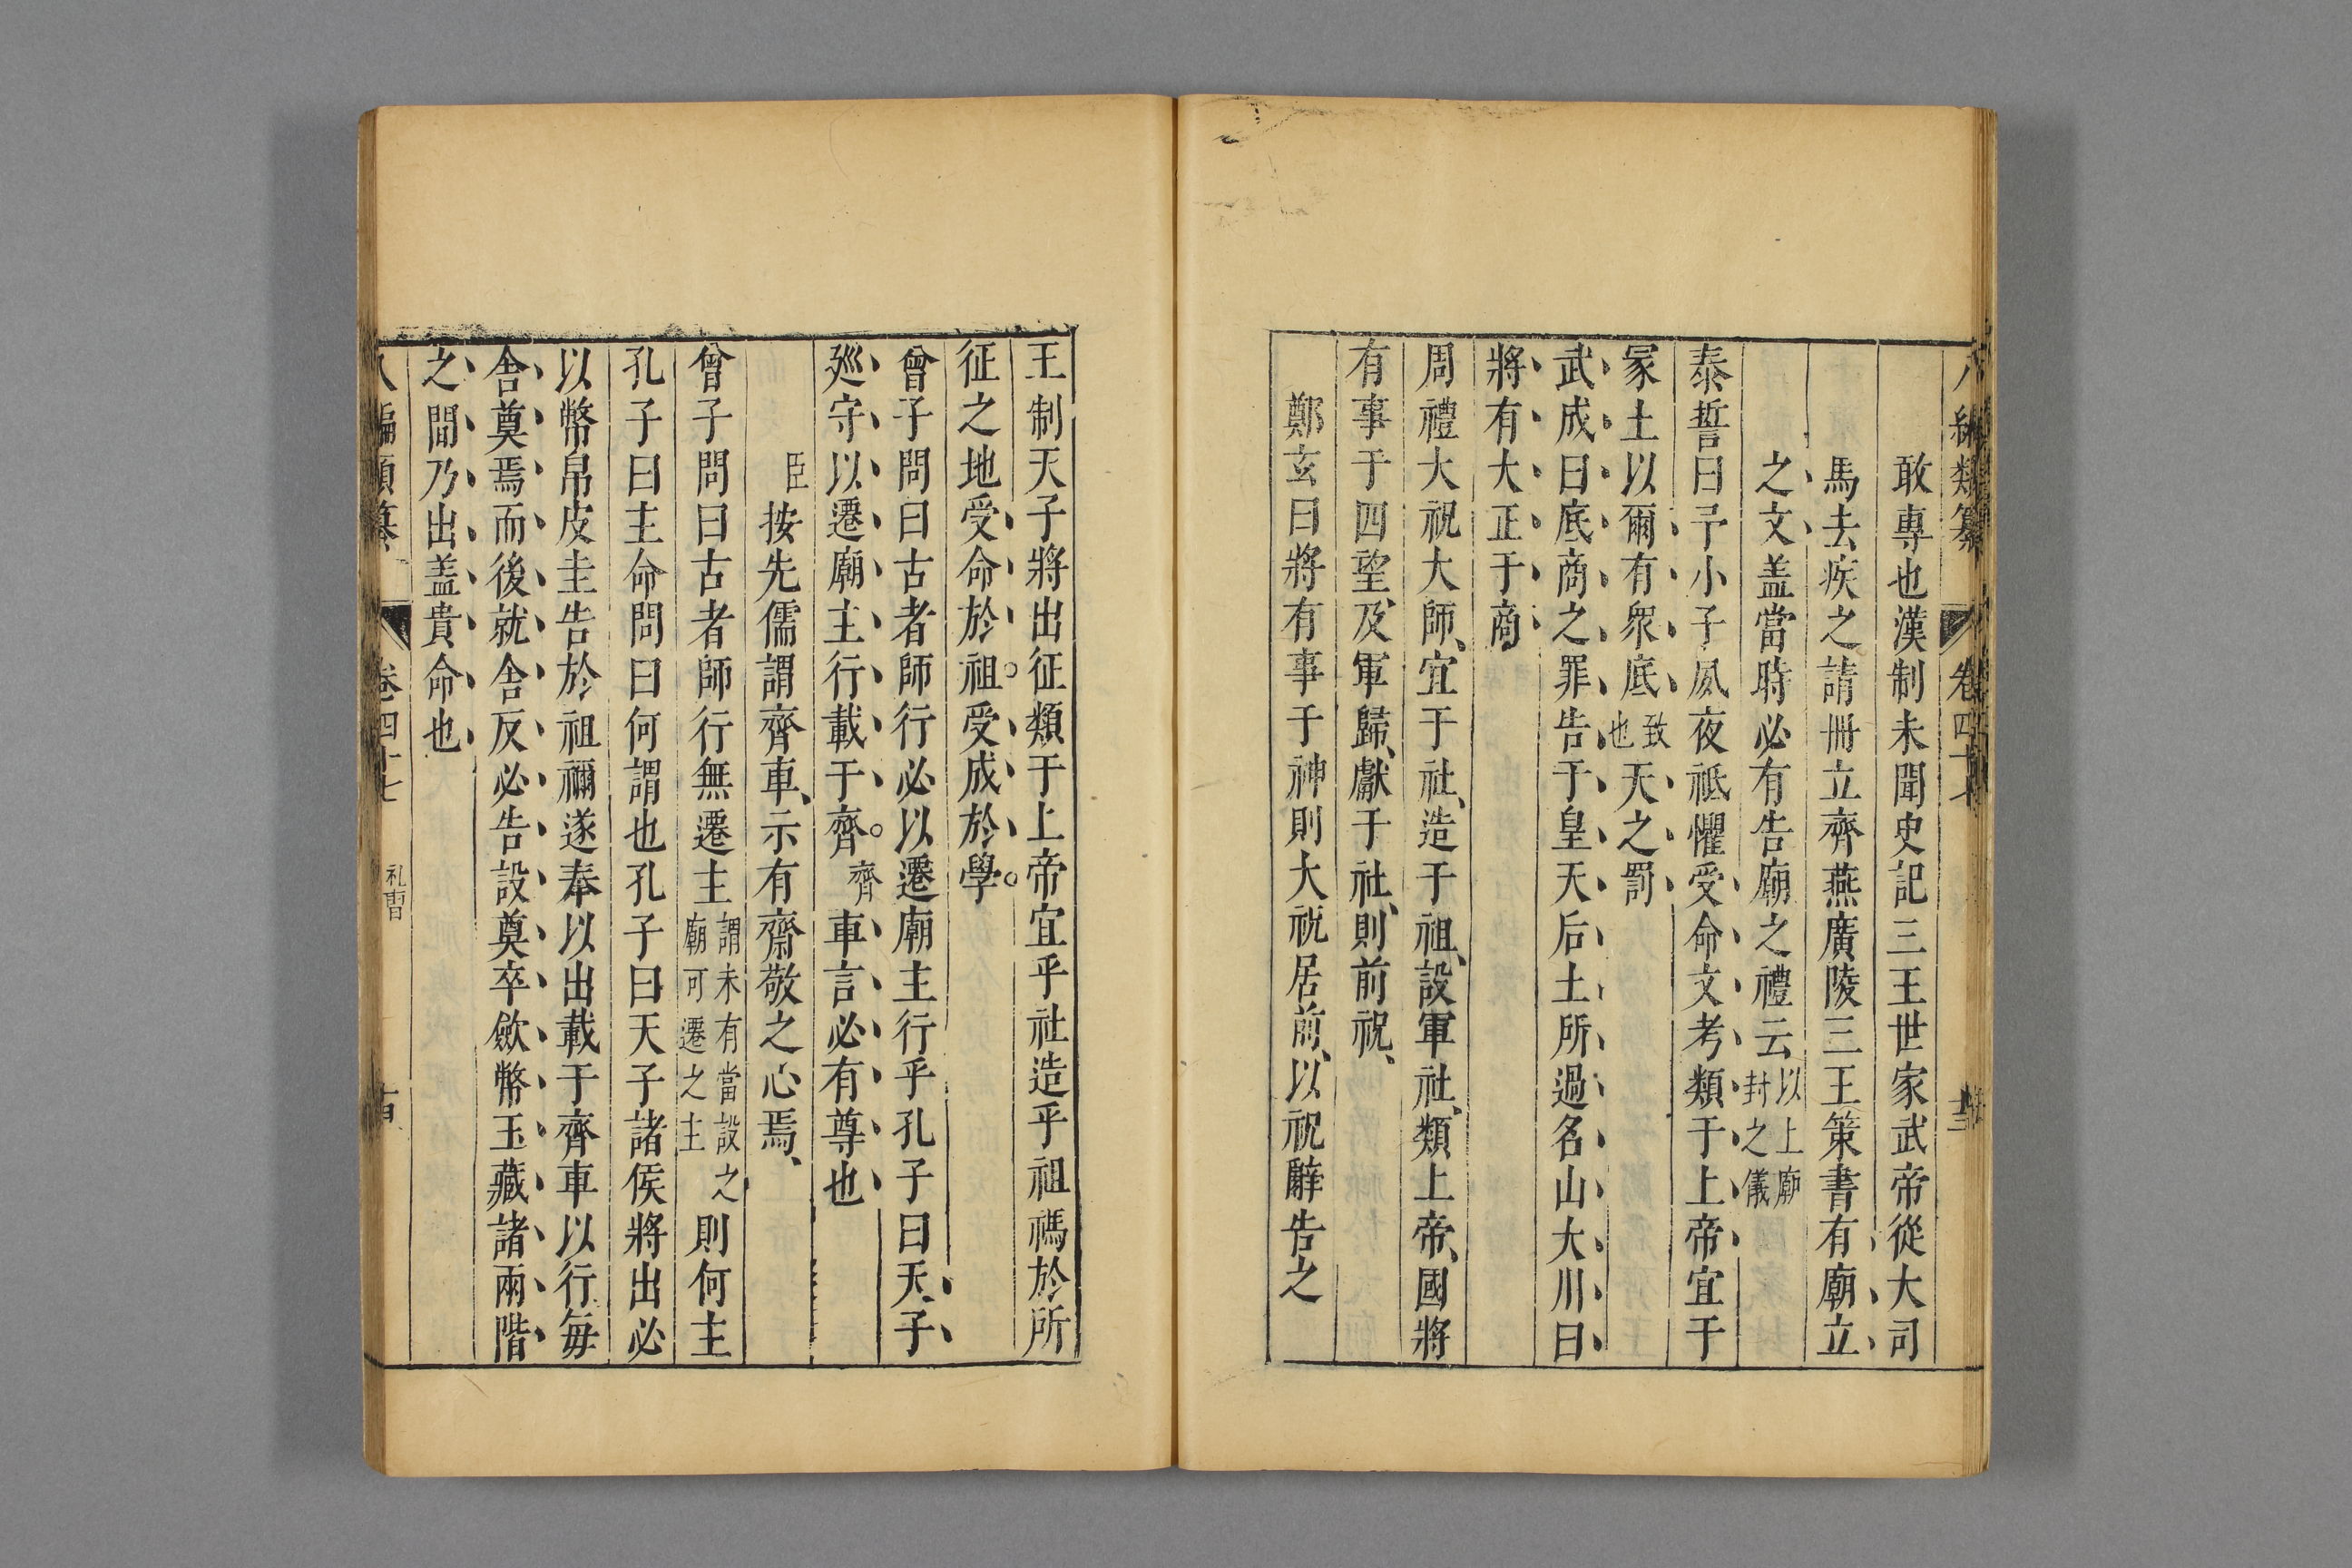 八編類纂 卷四十七
敢專也漢制未聞史記三王世家武帝從大司
馬去疾之請冊立齊燕廣陵三王策書有廟立
之文盖當時必有告廟之禮云以上廟封之儀
泰誓曰予小子夙夜祗懼受命文考類于上帝宜于
冢土以爾有衆底致也天之罰
武成曰底商之罪告于皇天后土所過名山大川曰
將有大正于商
周禮大祝大師、宜于社、造于祖、設軍社、類上帝、國將
有事于四望、及軍歸、獻于社、則前祝、
鄭玄曰將有事于神則大祝居前、以祝辭告之
王制天子將出征類于上帝宜乎社造乎祖禡於所
征之地受命於祖受成於學
曾子問曰古者師行必以遷廟主行乎孔子曰天子
廵守以遷廟主行載于齊齊車言必有尊也
臣按先儒謂齊車、示有齋敬之心焉、
曾子問曰古者師行無遷主謂未有當設之廟可遷之主則何主
孔子曰主命問曰何謂也孔子曰天子諸侯將出必
以幣帛皮圭告於祖禰遂奉以出載于齊車以行每
舍奠焉而後就舍反必告設奠卒斂幣玉藏諸兩階
之間乃出盖貴命也
八編類纂 卷四十七 礼曹